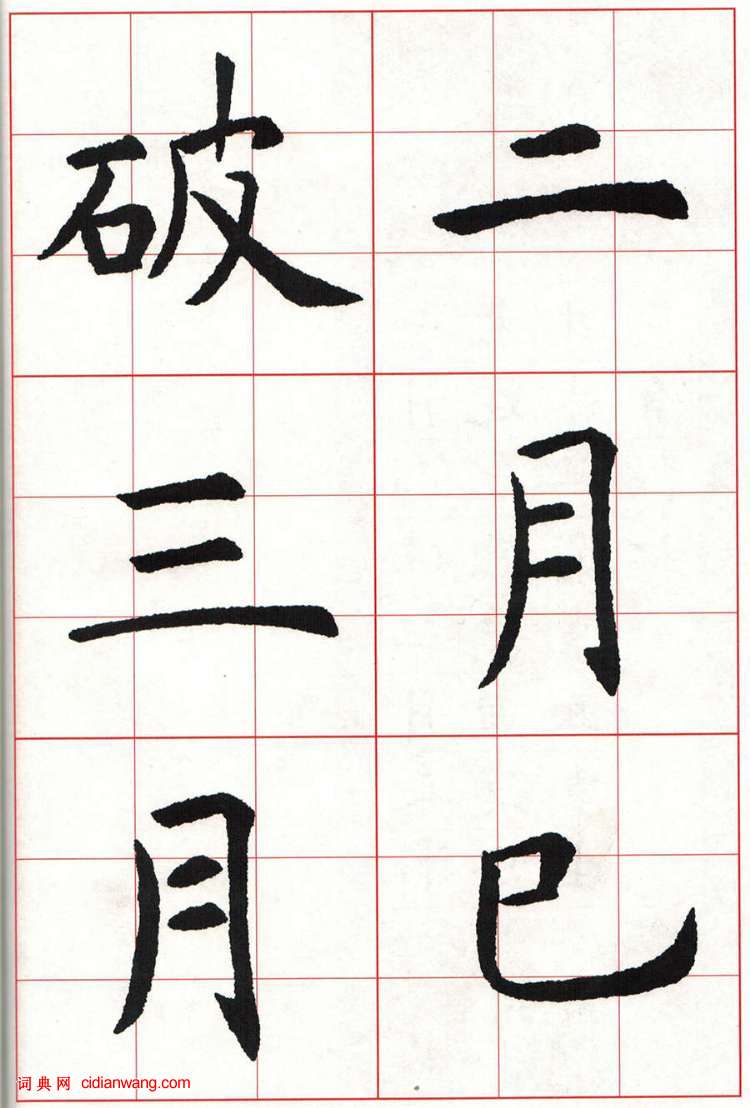 二月已
破三月
词典网 cidianwang.com